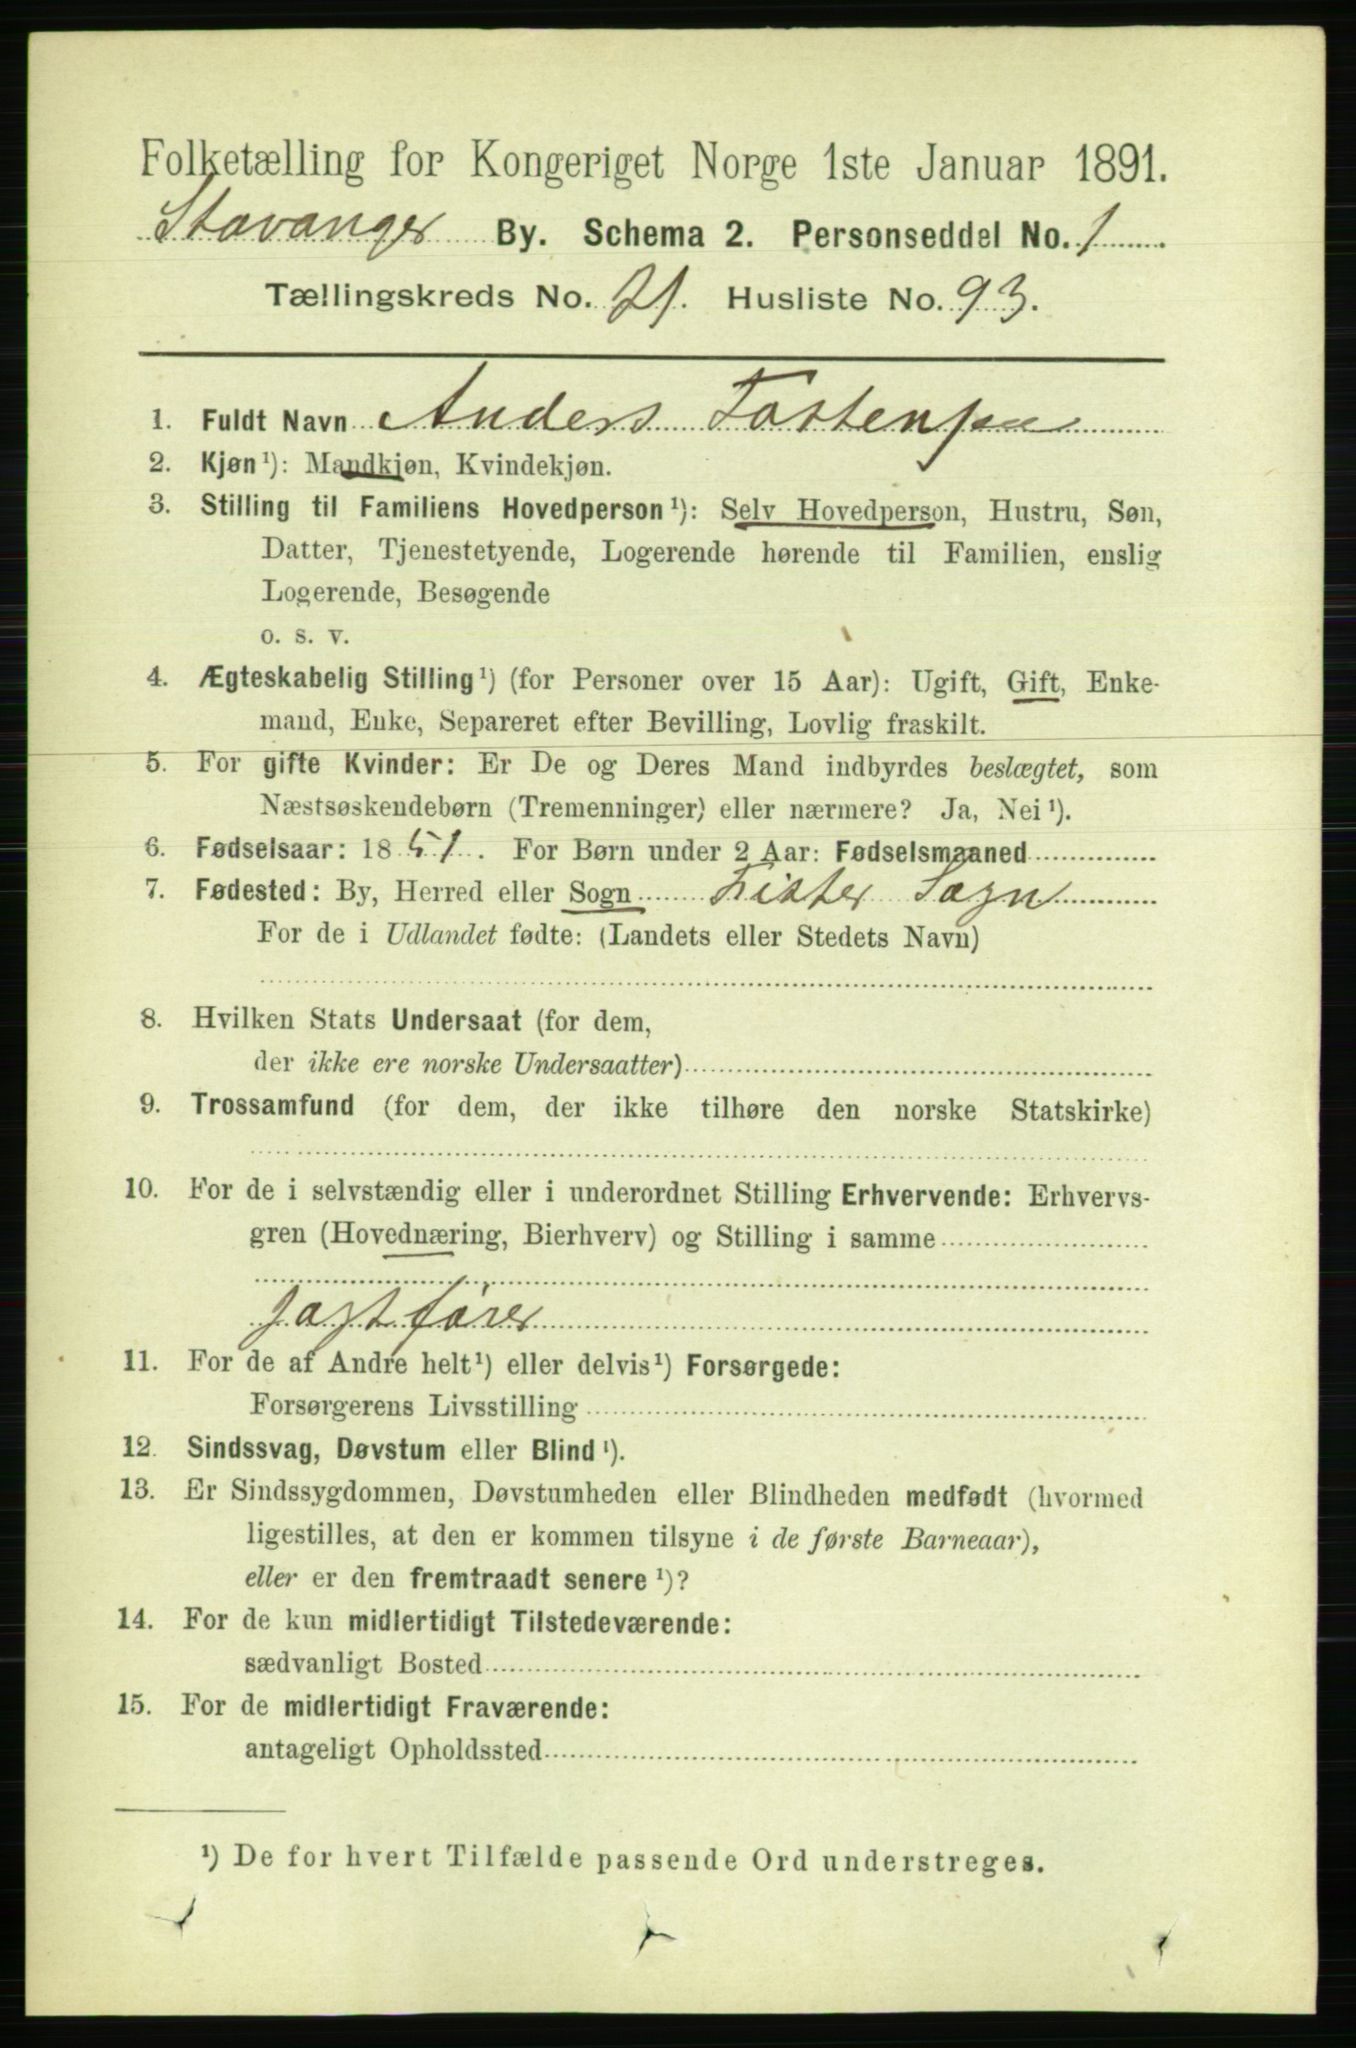 Folketælling for Kongeriget Norge 1ste Januar 1891.
Stavanger By. Schema 2. Personseddel No. 1
Tællingskreds No. 21. Husliste No. 93.
1. Fuldt Navn Anders Tostensen
2. Kjøn¹): Mandkjøn, Kvindekjøn.
3. Stilling til Familiens Hovedperson¹): Selv Hovedperson, Hustru, Søn,
Datter, Tjenestetyende, Logerende hørende til Familien, enslig
Logerende, Besøgende
o. s. v.
4. Ægteskabelig Stilling¹) (for Personer over 15 Aar): Ugift, Gift, Enke-
mand, Enke, Separeret efter Bevilling, Lovlig fraskilt.
5. For gifte Kvinder: Er De og Deres Mand indbyrdes beslægtet, som
Næstsøskendebørn (Tremenninger) eller nærmere? Ja, Nei¹).
6. Fødselsaar: 1851. For Børn under 2 Aar: Fødselsmaaned
7. Fødested: By, Herred eller Sogn Fister Sogn
For de i Udlandet fødte: (Landets eller Stedets Navn)
8. Hvilken Stats Undersaat (for dem,
der ikke ere norske Undersaatter)
9. Trossamfund (for dem, der ikke tilhøre den norske Statskirke)
10. For de i selvstændig eller i underordnet Stilling Erhvervende: Erhvervs-
gren (Hovednæring, Bierhverv) og Stilling i samme
Jagtfører
11. For de af Andre helt¹) eller delvis¹) Forsørgede:
Forsørgerens Livsstilling
12. Sindssvag, Døvstum eller Blind¹).
13. Er Sindssygdommen, Døvstumheden eller Blindheden medfødt (hvormed
ligestilles, at den er kommen tilsyne i de første Barneaar),
eller er den fremtraadt senere¹)?
14. For de kun midlertidigt Tilstedeværende:
sædvanligt Bosted
15. For de midlertidigt Fraværende:
antageligt Opholdssted
¹) De for hvert Tilfælde passende Ord understreges.